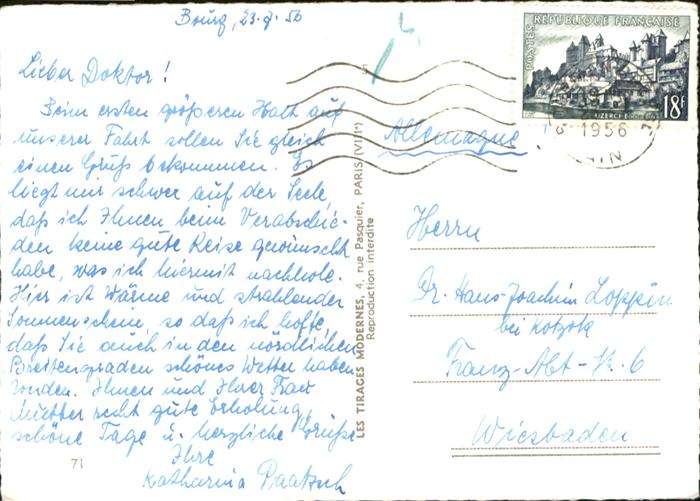 Bourg, 23.8.56
Lieber Doktor!
Beim ersten größeren Halt auf
unserer Fahrt sollen Sie gleich
einen Gruß bekommen. Es
liegt mir schwer auf der Seele,
daß ich Ihnen beim Verabschie-
den keine gute Reise gewünscht
habe, was ich hiermit nachhole.
Hier ist Wärme und strahlender
Sonnenschein, so daß ich hoffe,
daß Sie auch in den nördlichen
Breitengraden schönes Wetter haben
werden. Ihnen und Ihrer Frau
Mutter recht gute Erholung,
schöne Tage u. herzliche Grüße
Ihre
Katharina Paatsch
71
LES TIRAGES MODERNES, 4, rue Pasquier, PARIS (VIIIe)
Reproduction interdite
POSTES REPUBLIQUE FRANÇAISE
18F
UZERCHE
1956
AIN
Allemagne
Herrn
Dr. Hans-Joachim Loppin
bei
Franz-Abt-Str. 6
Wiesbaden